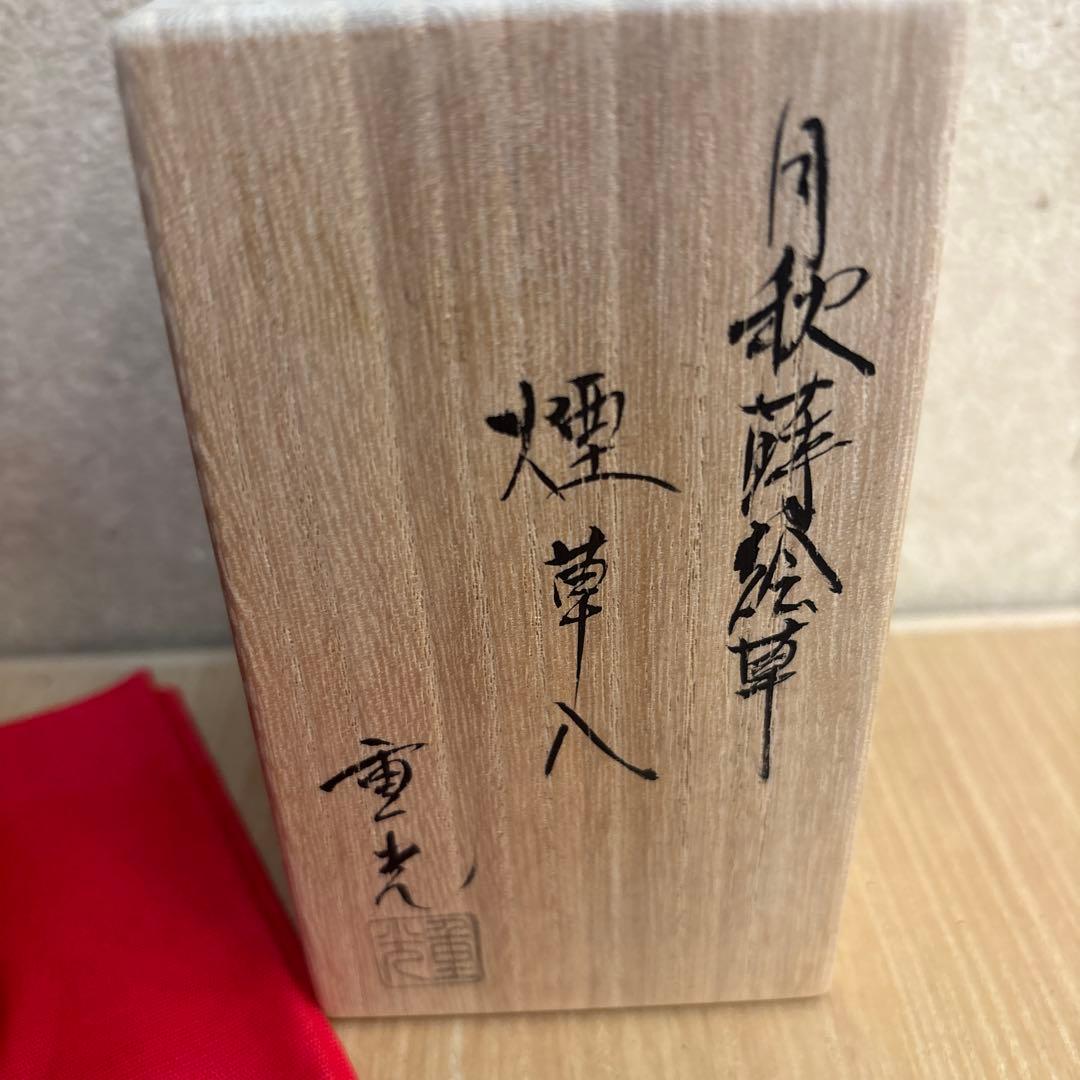 月秋蒔絵草
煙草入
重光
重光